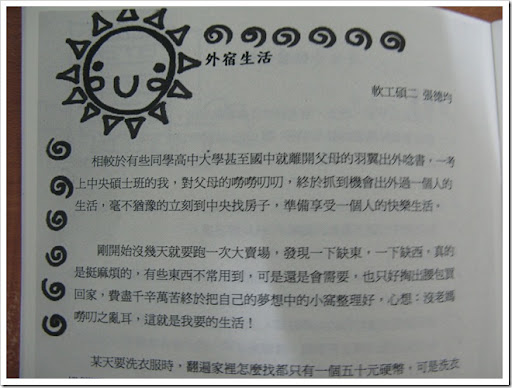 外宿生活
軟工碩二 張德均
相較於有些同學高中大學甚至國中就離開父母的羽翼出外唸書，一考
上中央碩士班的我，對父母的嘮嘮叨叨，終於抓到機會出外過一個人的
生活，毫不猶豫的立刻到中央找房子，準備享受一個人的快樂生活。
剛開始沒幾天就要跑一次大賣場，發現一下缺東，一下缺西，真的
是挺麻煩的，有些東西不常用到，可是還是會需要，也只好掏出腰包買
回家，費盡千辛萬苦終於把自己的夢想中的小窩整理好，心想：沒老媽
嘮叨之亂耳，這就是我要的生活！
某天要洗衣服時，翻遍家裡怎麼找都只有一個五十元硬幣，可是洗衣